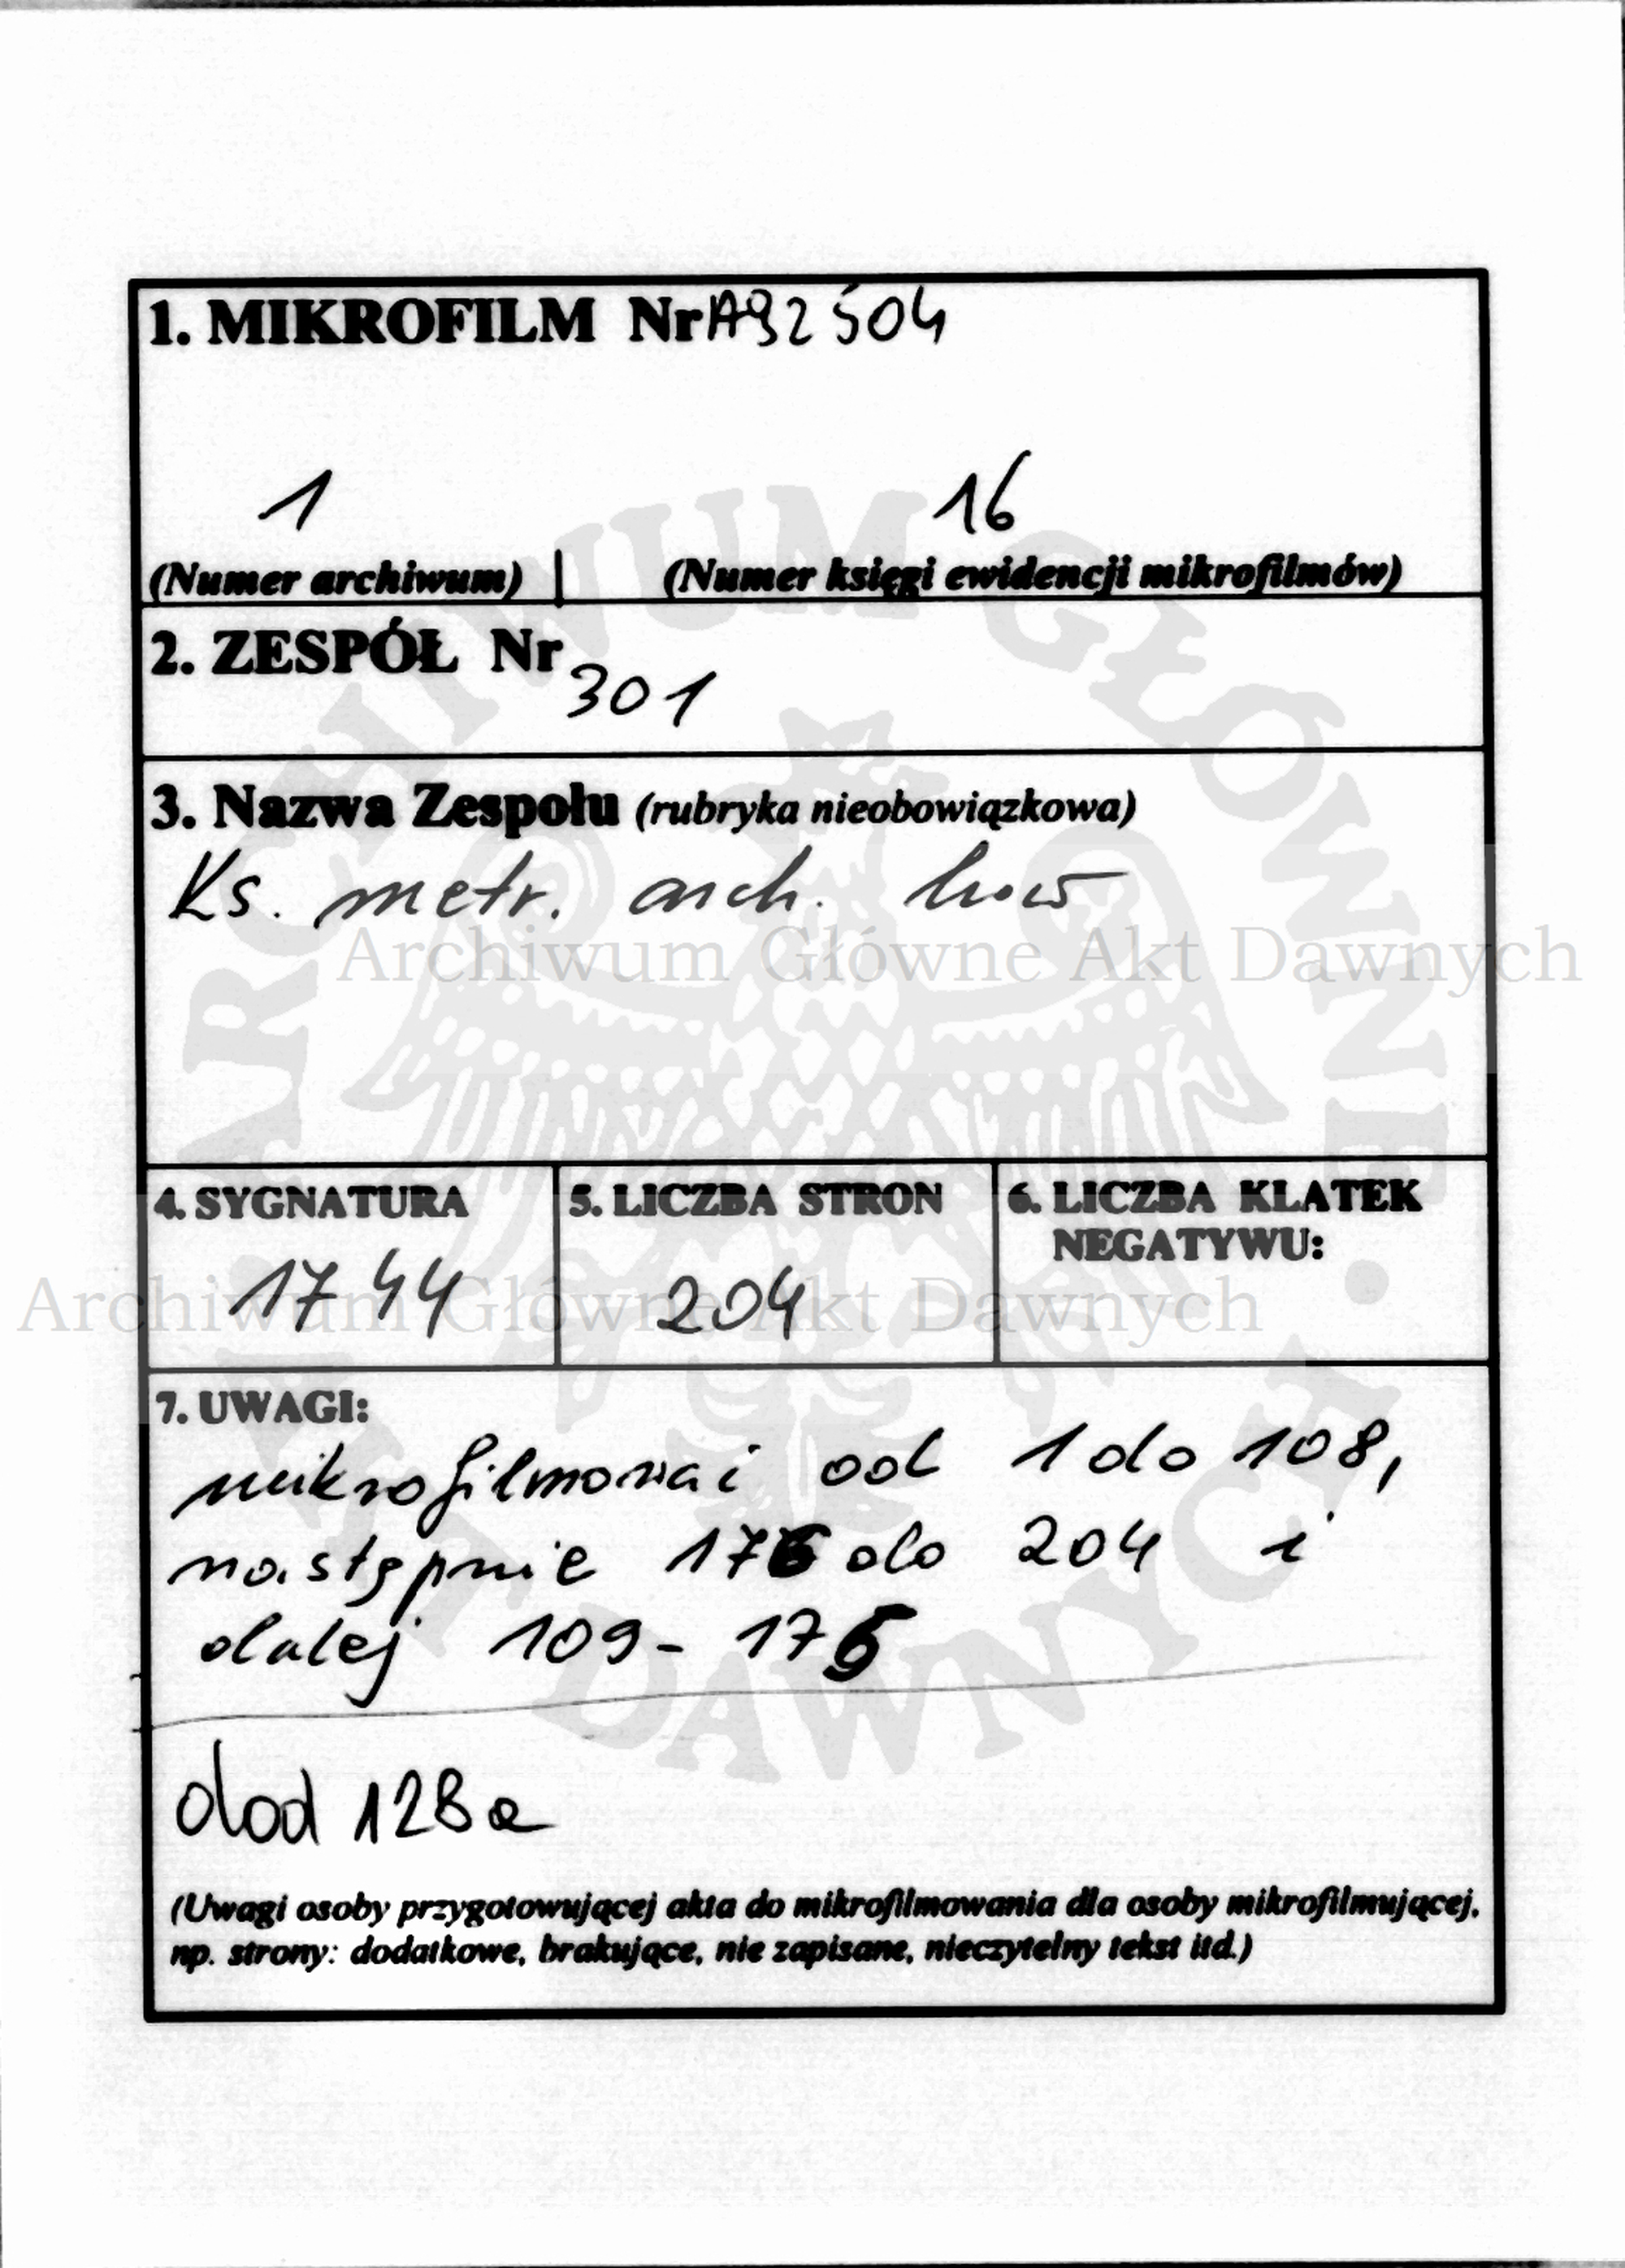 1. MIKROFILM Nr A92504
1 16
(Numer archiwum) (Numer księgi ewidencji mikrofilmów)
2. ZESPÓŁ Nr 301
3. Nazwa Zespołu (rubryka nieobowiązkowa)
Ks. metr. arch.
Archiwum Główne Akt Dawnych
4. SYGNATURA 5. LICZBA STRON 6. LICZBA KLATEK
NEGATYWU:
1744 204
Archiwum Główne Akt Dawnych
7. UWAGI:
mikrofilmować od 1 do 108,
następnie 176 do 204 i
dalej 109-175
dod 128a
(Uwagi osoby przygotowującej akta do mikrofilmowania dla osoby mikrofilmującej,
np. strony: dodatkowe, brakujące, nie zapisane, nieczytelny tekst itd.)
ARCHIWUM GŁÓWNE AKT DAWNYCH